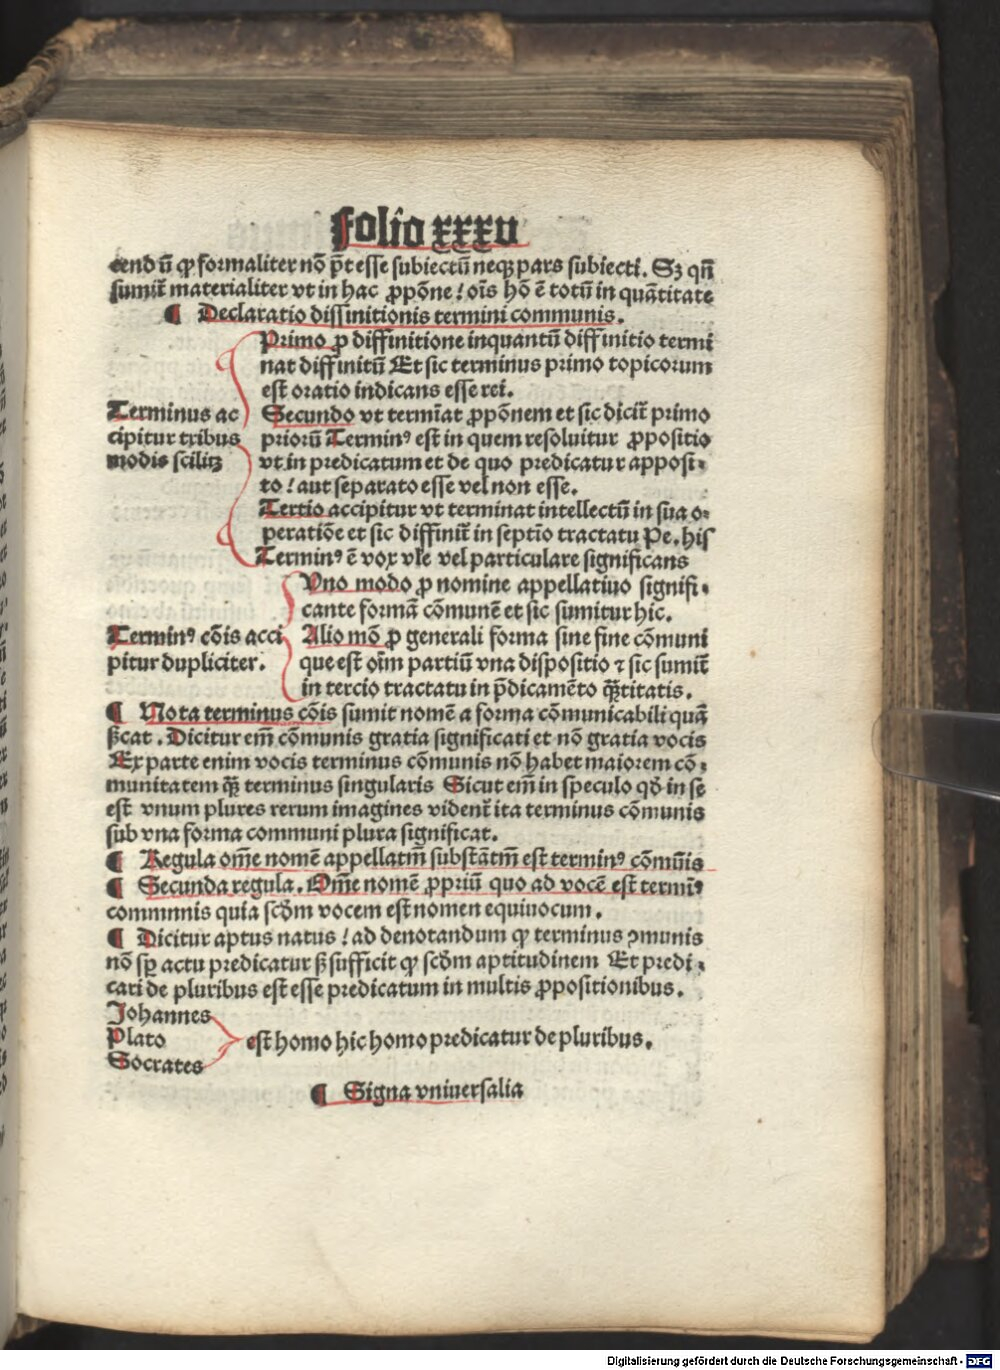 Folio xxxv
cend ū ꝙ formaliter nō pt̄ esse subiectū neqꝫ pars subiecti. Sꝫ qn̄
sumit̄ materialiter vt in hac ꝓpōne / oīs hō ē totū in quātitate
¶ Declaratio diffinitionis termini communis.
Primo ꝓ diffinitione inquantū diffinitio termi
nat diffinitū Et sic terminus primo topicorum
est oratio indicans esse rei.
Terminus ac
cipitur tribus
modis scilicꝫ
Secundo vt termīat ꝓpōnem et sic dicit̄ primo
priorū Terminꝰ est in quem resoluitur ꝓpositio
vt in predicatum et de quo predicatur apposi-
to / aut separato esse vel non esse.
Tertio accipitur vt terminat intellectū in sua o-
peratiōe et sic diffinit̄ in septīo tractatu Pe. his
Terminꝰ ē vox vl̄e vel particulare significans
Terminꝰ cōis acci
pitur dupliciter.
Vno modo ꝓ nomine appellatiuo signifi-
cante formā cōmunē et sic sumitur hic.
Alio mō ꝓ generali forma sine fine cōmuni
que est oīm partiū vna dispositio ⁊ sic sumit̄
in tercio tractatu in p̄dicamēto q̄titatis.
¶ Nota terminus cōis sumit nomē a forma cōmunicabili quā
sīcat. Dicitur em̄ cōmunis gratia significati et nō gratia vocis
Ex parte enim vocis terminus cōmunis nō habet maiorem cō-
munitatem q̄ꝫ terminus singularis Sicut em̄ in speculo qd̄ in se
est vnum plures rerum imagines vident̄ ita terminus cōmunis
sub vna forma communi plura significat.
¶ Regula om̄e nomē appellatm̄ substātm̄ est terminꝰ cōmūis
¶ Secunda regula. Om̄e nomē ꝓpriū quo ad vocē est termīꝰ
commnnis quia scd̄m vocem est nomen equiuocum.
¶ Dicitur aptus natus / ad denotandum ꝙ terminus ꝯmunis
nō sꝑ actu predicatur sꝫ sufficit ꝙ scd̄m aptitudinem Et predi-
cari de pluribus est esse predicatum in multis ꝓpositionibus.
Johannes
Plato
Socrates
est homo hic homo predicatur de pluribus.
¶ Signa vniuersalia
Digitalisierung gefördert durch die Deutsche Forschungsgemeinschaft - DFG